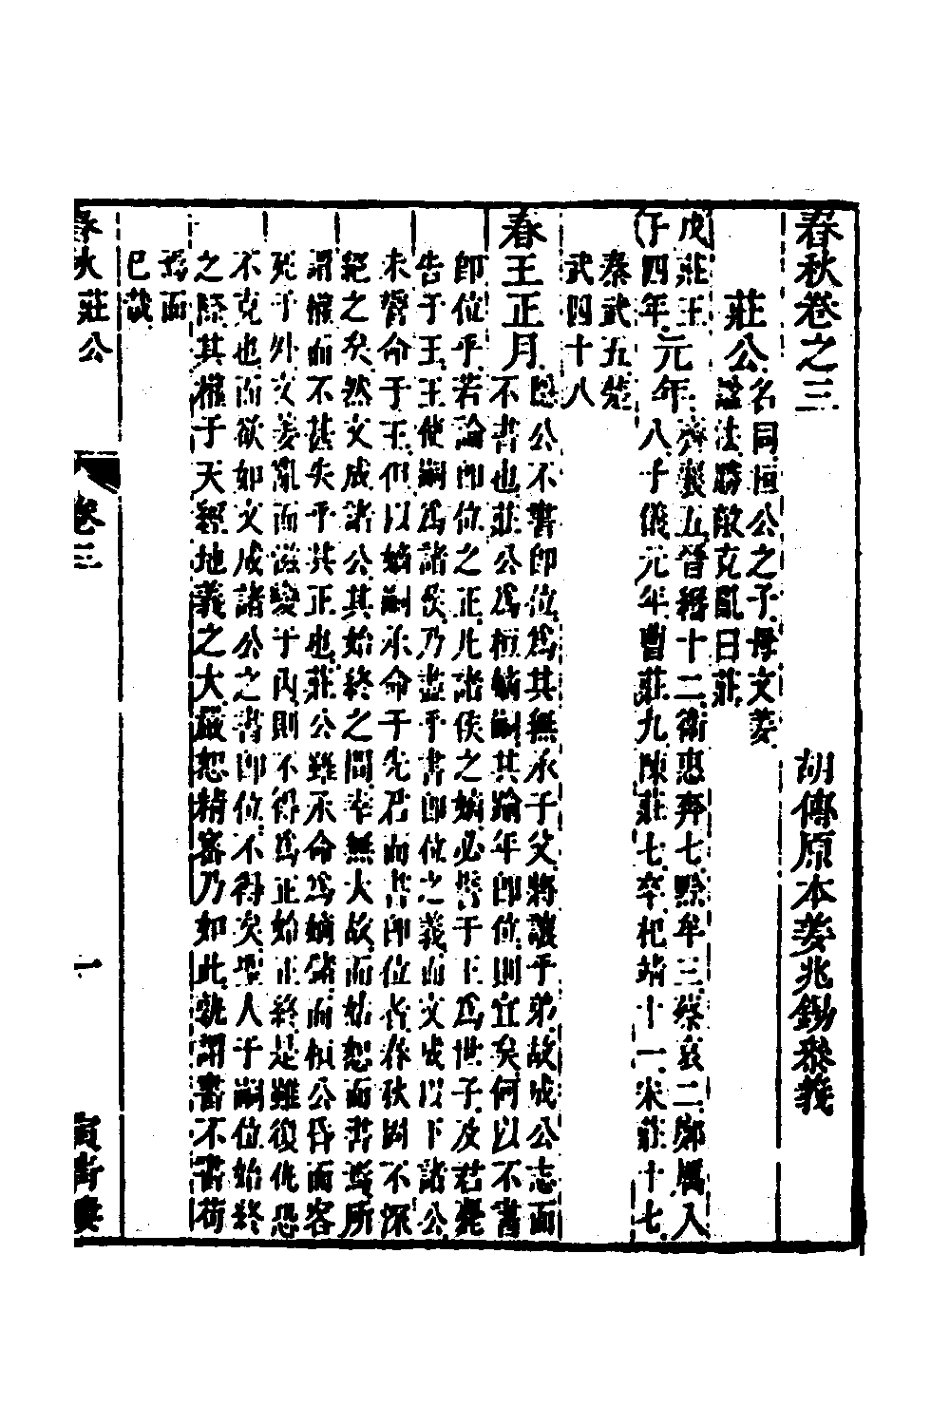 春秋卷之三
胡傳原本姜兆錫參義
莊公
名同桓公之子母文姜
謚法勝敵克亂曰莊
戊子
莊王四年
元年
齊襄五晉緡十二衛惠奔七黔牟三蔡哀二鄭厲入
八子儀元年曹莊九陳莊七卒杞靖十一宋莊十七
秦武五楚
武四十八
春王正月
隱公不書即位爲其無承子父將讓乎弟故成公志而
不書也莊公爲桓嫡嗣其踰年即位則宜矣何以不書
即位乎若論即位之正凡諸侯之嫡必誓于王爲世子及君薨
告于王王使嗣爲諸侯乃盡乎書即位之義而文成以下諸公
未誓命于王但以嫡嗣承命于先君而書即位者春秋固不深
絕之矣然文成諸公其始終之間幸無大故而姑恕而書焉所
謂權而不甚失乎其正也莊公雖承命爲嫡儲而桓公昏而客
死于外文姜亂而滋變于內則不得爲正始正終是雖復仇恐
不克也而欲如文成諸公之書即位不得矣聖人于嗣位始終
之際其權于天經地義之大嚴恕精審乃如此孰謂書不書苟
焉而
已哉
春秋 莊公
卷三
一
寅清樓